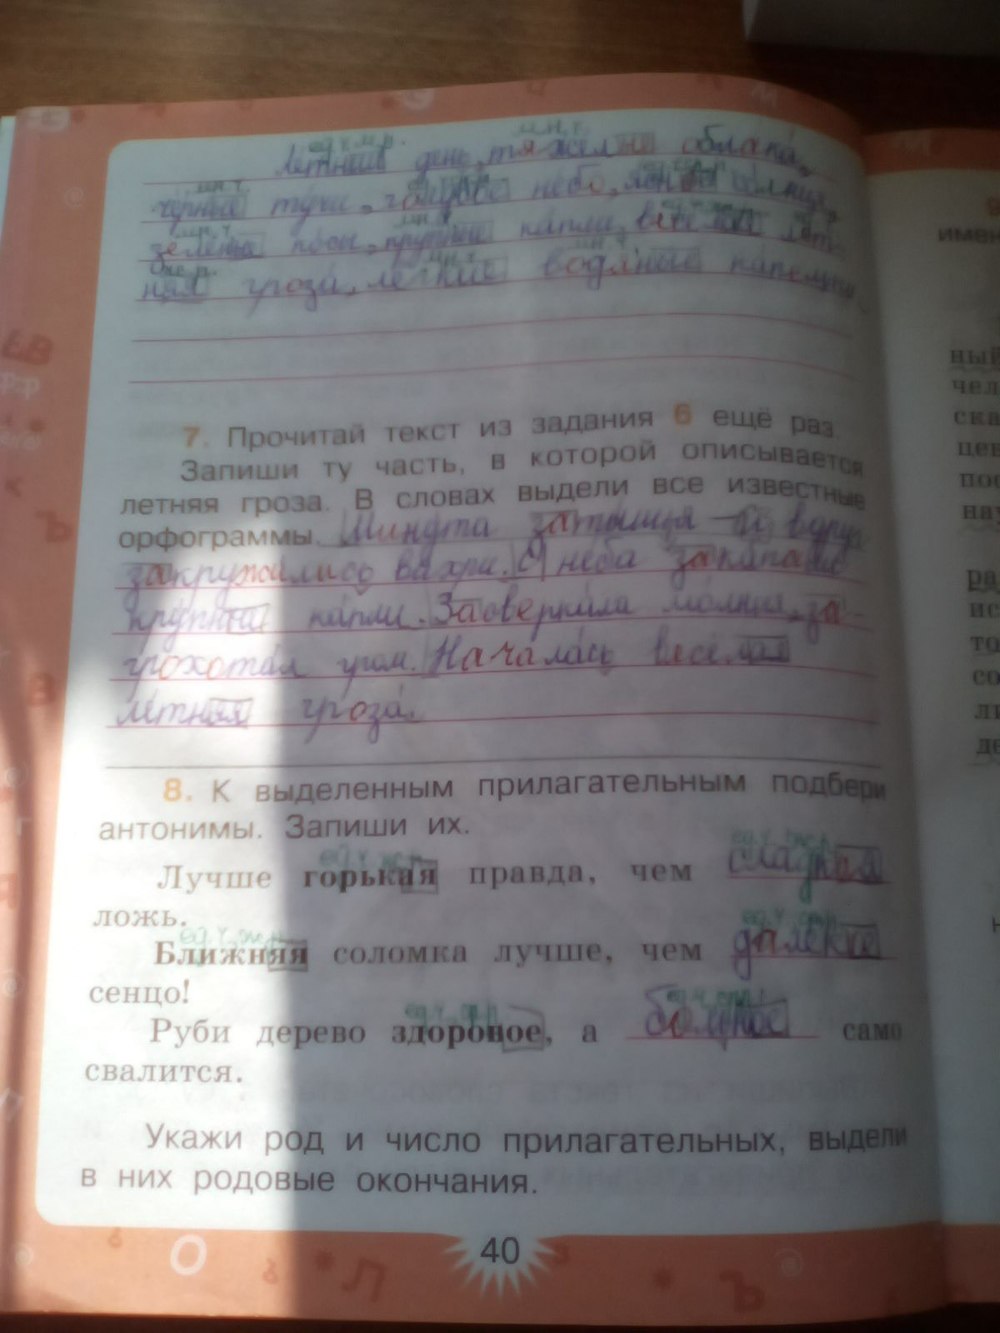 ед.ч. м.р. мн.ч.
Летний день, тяжёлые облака,
мн.ч.
чёрные тучи, голубое небо,
мн.ч. мн.ч.
зелёные крупные капли, весёлая лет-
ж.р. мн.ч. мн.ч.
няя гроза, лёгкие водяные
7. Прочитай текст из задания 6 ещё раз.
Запиши ту часть, в которой описывается
летняя гроза. В словах выдели все известные
орфограммы. Минута затишья – и вдруг
закружились вихри. С неба закапали
крупные капли. Засверкала молния, за-
грохотал гром. Началась весёлая
летняя гроза.
8. К выделенным прилагательным подбери
антонимы. Запиши их.
ед.ч. ж.р. ед.ч. ж.р.
Лучше горькая правда, чем сладкая
ложь.
ед.ч. ж.р. ед.ч. ср.р.
Ближняя соломка лучше, чем далёкое
сенцо!
ед.ч. ср.р. ед.ч. ср.р.
Руби дерево здоровое, а больное само
свалится.
Укажи род и число прилагательных, выдели
в них родовые окончания.
40
имен
ный
чел
ска
цев
пог
нау
раз
ис
то
со
ли
де